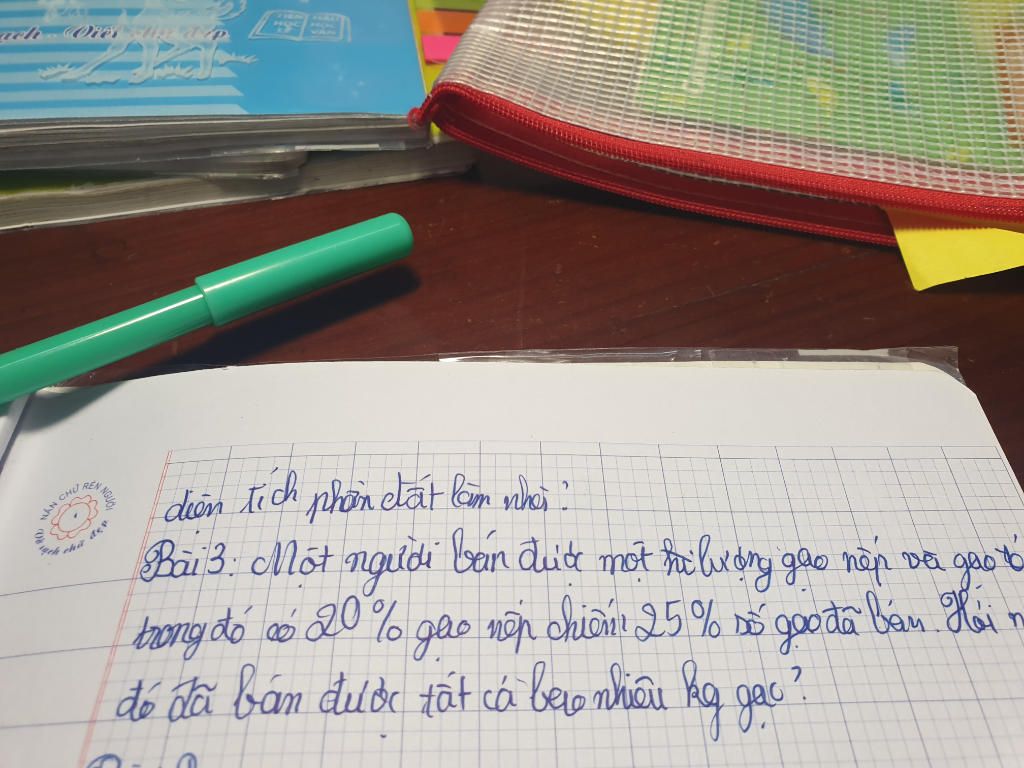 ạch - Viết chữ đẹp
TIÊN HỌC LỄ HẬU HỌC VĂN
NẮN CHỮ RÈN NGƯỜI
sạch chữ đẹp
diện tích phần đất làm nhà?
Bài 3: Một người bán được một lượng gạo nếp và gạo tẻ
trong đó có 20% gạo nếp chiếm 25% số gạo đã bán. Hỏi n
đó đã bán được tất cả bao nhiêu kg gạo?